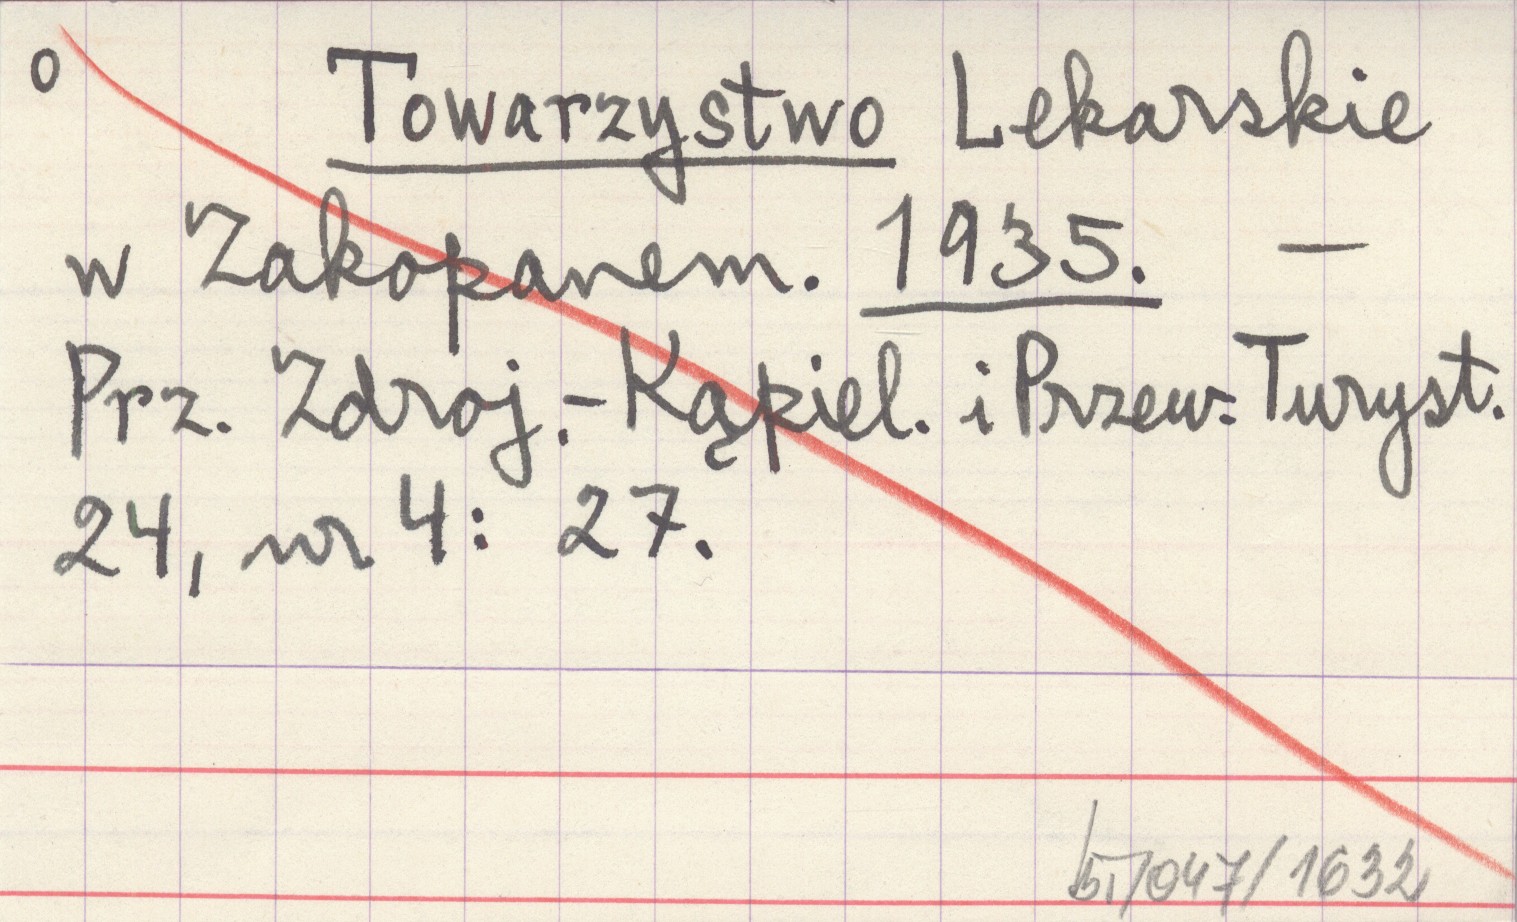 o Towarzystwo Lekarskie
w Zakopanem. 1935. —
Prz. Zdroj.-Kąpiel. i Przew. Turyst.
24, nr 4: 27.
/047/1632